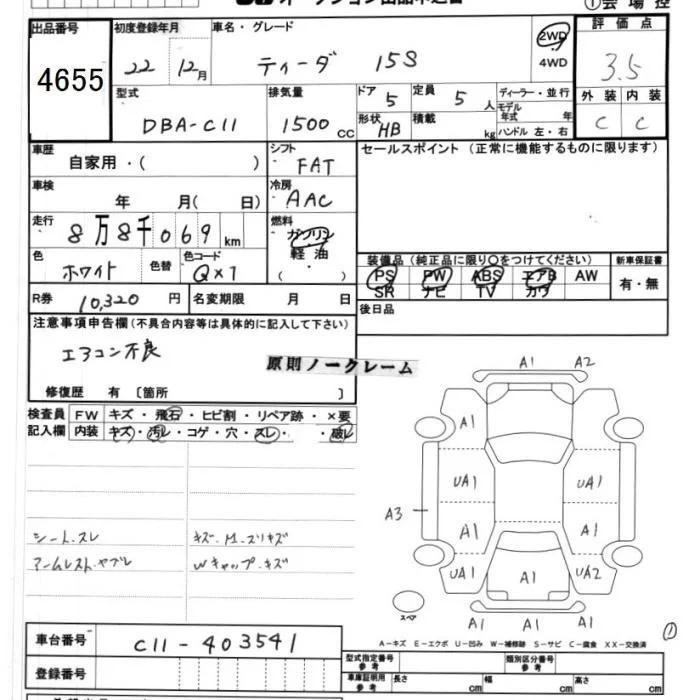 ①会場控
出品番号 4655
初度登録年月 22 12月
車名・グレード ティーダ 15S
2WD
4WD
評価点 3.5
外装 内装
C C
型式 DBA-C11
排気量 1500 CC
ドア 5
定員 5人
形状 HB
積載 kg
ディーラー・並行
モデル年式 年
ハンドル 左・右
車歴 自家用・( )
シフト FAT
セールスポイント (正常に機能するものに限ります)
車検 年 月( 日)
冷房 AAC
走行 8万8千069km
燃料 ガソリン
軽油
( ・ )
色 ホワイト 色替 色コード QX1
装備品 (純正品に限り○をつけてください)
PS PW ABS エアB AW
SR ナビ TV カワ
新車保証書
有・無
R券 10,320円 名変期限 月 日
後日品
注意事項申告欄 (不具合内容等は具体的に記入して下さい)
エアコン不良
原則ノークレーム
修復歴 有 〔箇所 〕
検査員 FW キズ・飛石・ヒビ割・リペア跡・×要
記入欄 内装 キズ・汚レ・コゲ・穴・スレ・ ・破レ
シート.スレ
アームレスト.ヤブレ
キズ.M.スリキズ
Wキャップ.キズ
A1 A2
A1
UA1 UA1
A3
A1 A1
UA1 A1 UA2
A1 A1
スペア
①
A-キズ E-エクボ U-凹み W-補修跡 S-サビ C-腐食 XX-交換済
車台番号 C11-403541
登録番号
型式指定番号 参考
類別区分番号 参考
車庫証明用 参考 長さ cm 幅 cm 高さ cm